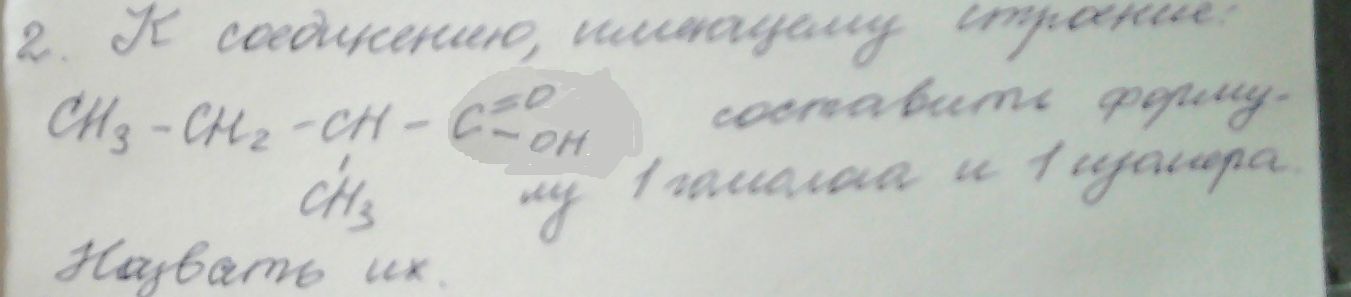 2. К соединению, имеющему строение:
CH3 - CH2 - CH - C =O - OH составить форму-
CH3 лу 1 гомолога и 1 изомера.
Назвать их.